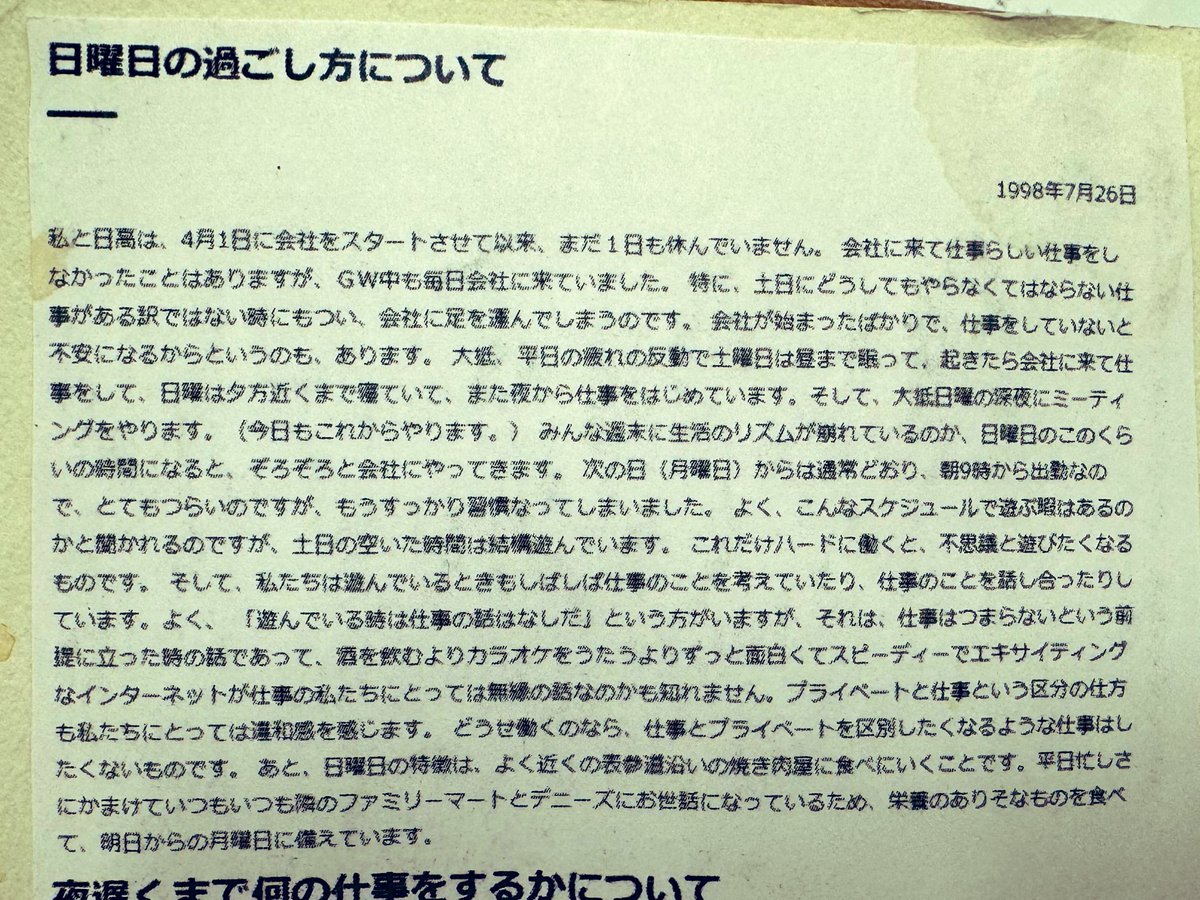 日曜日の過ごし方について
1998年7月26日
私と日高は、4月1日に会社をスタートさせて以来、まだ1日も休んでいません。 会社に来て仕事らしい仕事をし
なかったことはありますが、GW中も毎日会社に来ていました。 特に、土日にどうしてもやらなくてはならない仕
事がある訳ではない時にもつい、会社に足を運んでしまうのです。 会社が始まったばかりで、仕事をしていないと
不安になるからというのも、あります。 大抵、平日の疲れの反動で土曜日は昼まで眠って、起きたら会社に来て仕
事をして、日曜は夕方近くまで寝ていて、また夜から仕事をはじめています。そして、大抵日曜の深夜にミーティ
ングをやります。（今日もこれからやります。） みんな週末に生活のリズムが崩れているのか、日曜日のこのくら
いの時間になると、ぞろぞろと会社にやってきます。 次の日（月曜日）からは通常どおり、朝9時から出勤なの
で、とてもつらいのですが、もうすっかり習慣なってしまいました。 よく、こんなスケジュールで遊ぶ暇はあるの
かと聞かれるのですが、土日の空いた時間は結構遊んでいます。 これだけハードに働くと、不思議と遊びたくなる
ものです。 そして、私たちは遊んでいるときもしばしば仕事のことを考えていたり、仕事のことを話し合ったりし
ています。よく、「遊んでいる時は仕事の話はなしだ」という方がいますが、それは、仕事はつまらないという前
提に立った時の話であって、酒を飲むよりカラオケをうたうよりずっと面白くてスピーディーでエキサイティング
なインターネットが仕事の私たちにとっては無縁の話なのかも知れません。プライベートと仕事という区分の仕方
も私たちにとっては違和感を感じます。 どうせ働くのなら、仕事とプライベートを区別したくなるような仕事はし
たくないものです。 あと、日曜日の特徴は、よく近くの表参道沿いの焼き肉屋に食べにいくことです。平日忙しさ
にかまけていつもいつも隣のファミリーマートとデニーズにお世話になっているため、栄養のありそなものを食べ
て、明日からの月曜日に備えています。
夜遅くまで何の仕事をするかについて